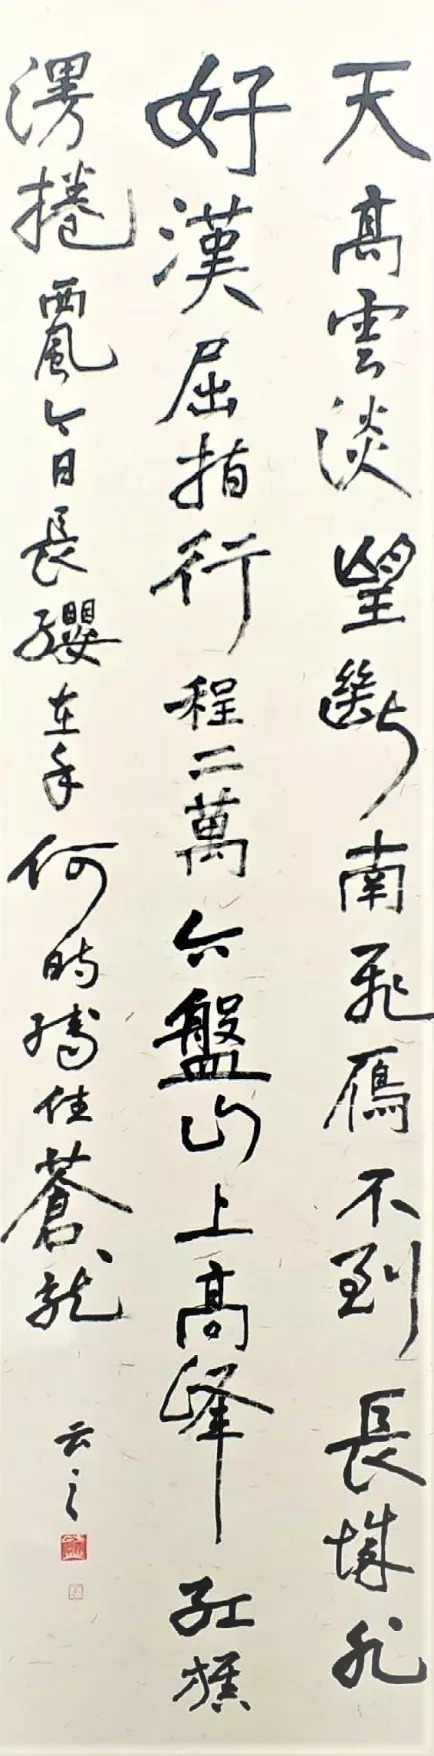 天高雲淡望斷南飛鴈不到長城非
好漢屈指行程二萬六盤山上高峰紅旗
漫捲西風今日長纓在手何時縛住蒼龍
云之